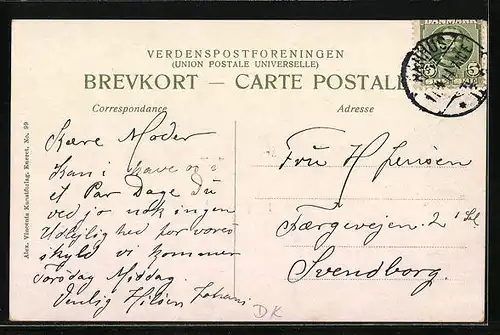 VERDENSPOSTFORENINGEN
(UNION POSTALE UNIVERSELLE)
BREVKORT — CARTE POSTALE
DANMARK
5 5
AARHUS
Correspondance
Adresse
Kære Moder
Kan i have
et Par Dage Du
ved jo nok ingen
Udlejlighed for vores
skyld vi kommer
Torsdag Middag.
Venlig Hilsen Johans
Fru H Jensen
Færgevejen 2' Sal
Svendborg.
Alex. Vincents Kunstforlag. Eneret. No. 99
DK